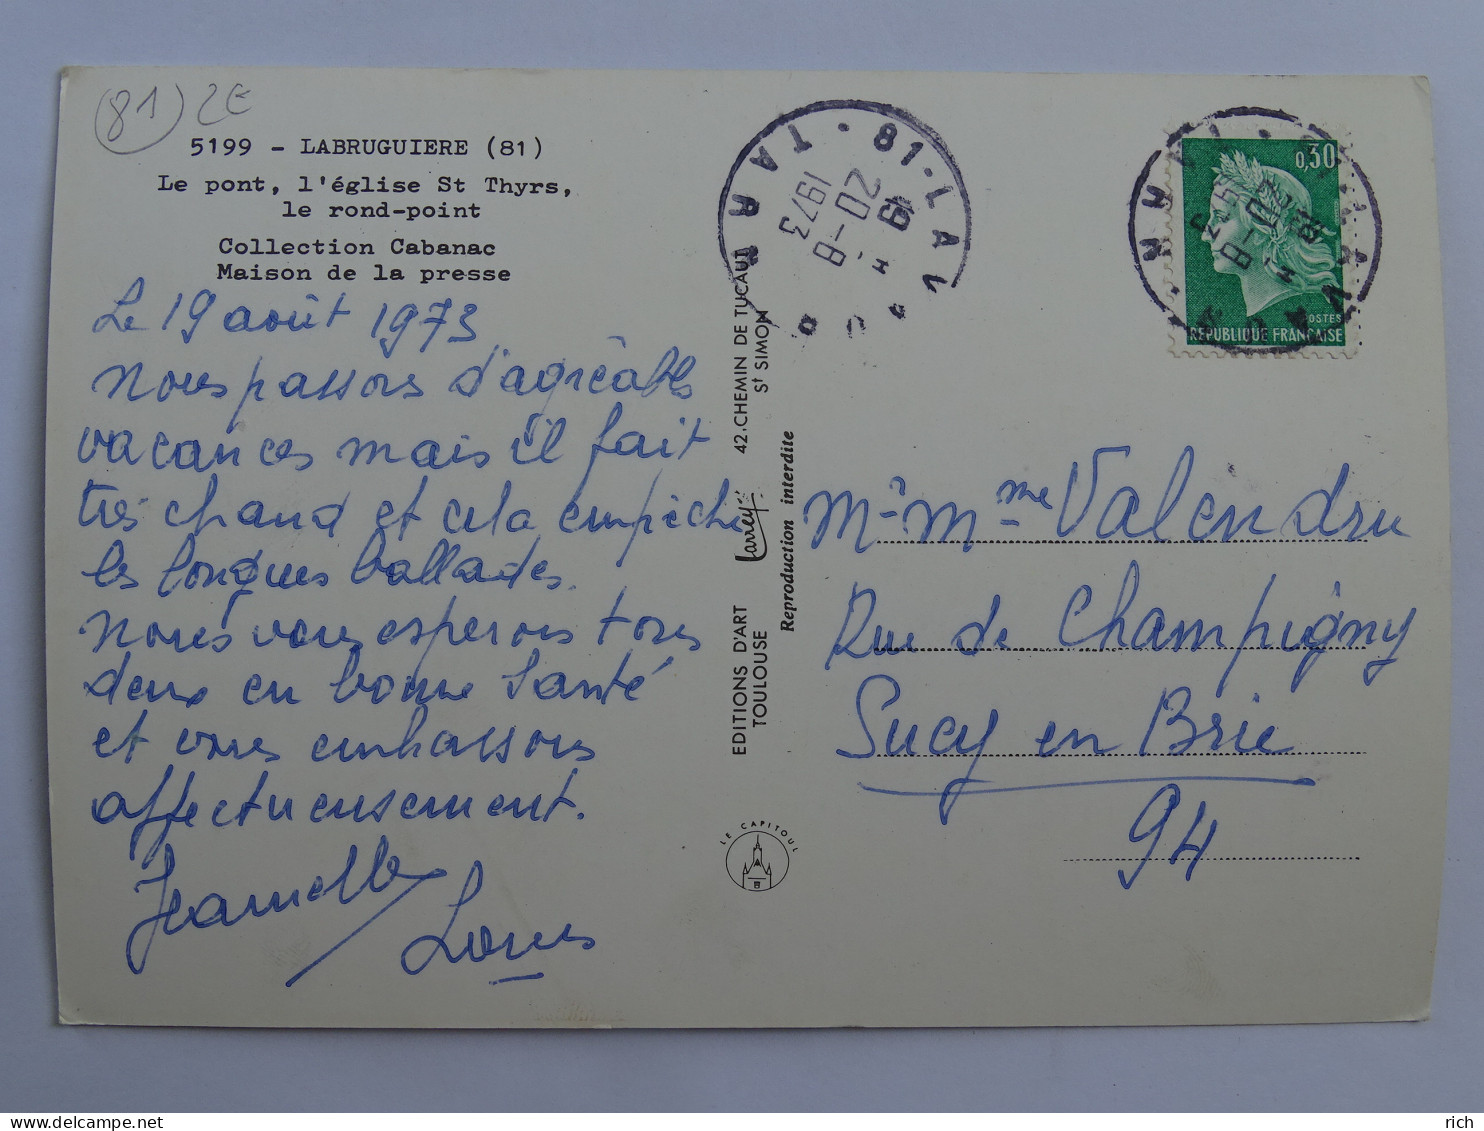 (81) 2E
5199 - LABRUGUIERE (81)
Le pont, l'église St Thyrs,
le rond-point
Collection Cabanac
Maison de la presse
Le 19 août 1973
Nous passons d'agréables
vacances mais il fait
très chaud et cela empêche
les longues ballades.
Nous vous espérons tous
deux en bonne santé
et vous embrassons
affectueusement.
Jeannette
Louis
EDITIONS D'ART Larrey 42, CHEMIN DE TUCAUT
TOULOUSE St SIMON
Reproduction interdite
LE CAPITOUL
81-LAVAUR
TARN
19 H
20-8
1973
0,30
POSTES
REPUBLIQUE FRANÇAISE
Mr Mme Valendru
Rue de Champigny
Sucy en Brie
94
rich